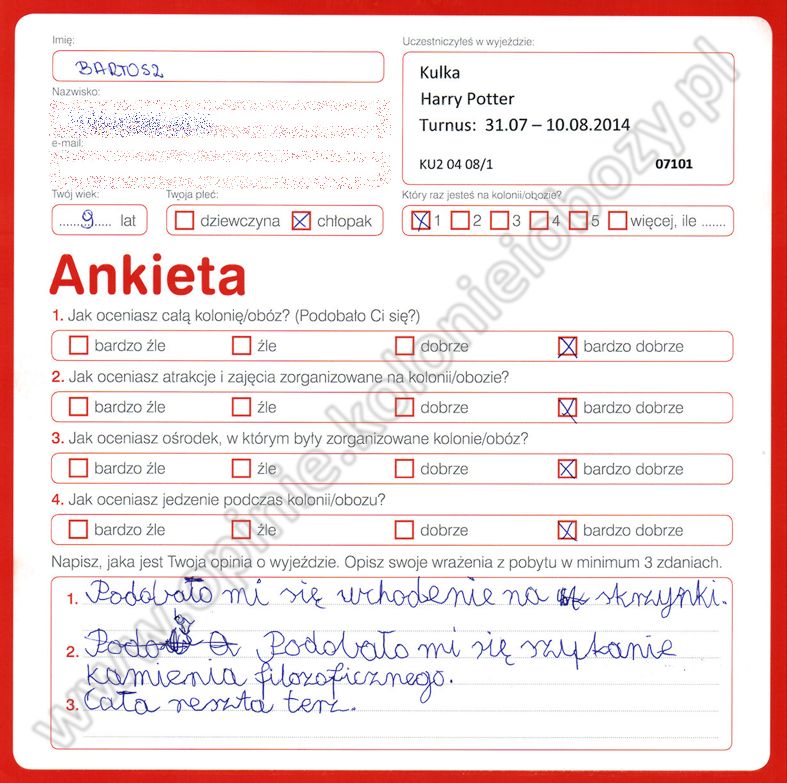 Imię:
BARTOSZ
Nazwisko:
e-mail:
Twój wiek:
......9...... lat
Twoja płeć:
dziewczyna chłopak
Uczestniczyłeś w wyjeździe:
Kulka
Harry Potter
Turnus: 31.07 – 10.08.2014
KU2 04 08/1 07101
Który raz jesteś na kolonii/obozie?
1 2 3 4 5 więcej, ile .......
Ankieta
1. Jak oceniasz całą kolonię/obóz? (Podobało Ci się?)
bardzo źle źle dobrze bardzo dobrze
2. Jak oceniasz atrakcje i zajęcia zorganizowane na kolonii/obozie?
bardzo źle źle dobrze bardzo dobrze
3. Jak oceniasz ośrodek, w którym były zorganizowane kolonie/obóz?
bardzo źle źle dobrze bardzo dobrze
4. Jak oceniasz jedzenie podczas kolonii/obozu?
bardzo źle źle dobrze bardzo dobrze
Napisz, jaka jest Twoja opinia o wyjeździe. Opisz swoje wrażenia z pobytu w minimum 3 zdaniach.
1. Podobało mi się wchodenie na skrzynki.
2. Podobało mi się szukanie
kamienia filozoficznego.
3. Cała reszta terz.
www.opinie.kolonieiobozy.pl